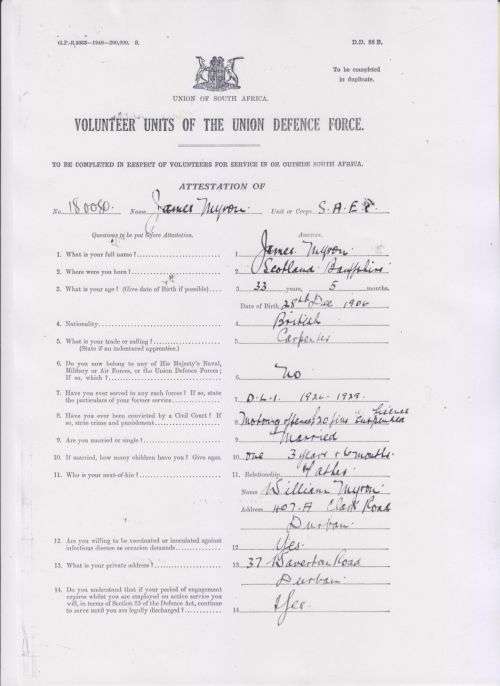 G.P.-S.5663—1940—200,000. S. D.D. 88 B.
To be completed
in duplicate.
UNION OF SOUTH AFRICA.
VOLUNTEER UNITS OF THE UNION DEFENCE FORCE.
TO BE COMPLETED IN RESPECT OF VOLUNTEERS FOR SERVICE IN OR OUTSIDE SOUTH AFRICA.
ATTESTATION OF
No. 18008 Name James Myron Unit or Corps S.A.E.C
Questions to be put before Attestation. Answers.
1. What is your full name? 1 James Myron
2. Where were you born? 2 Scotland Banffshire
3. What is your age? (Give date of Birth if possible) 3 33 years, 5 months.
Date of Birth 28th Dec 1906
4. Nationality 4 British
5. What is your trade or calling? 5 Carpenter
(State if an indentured apprentice.)
6. Do you now belong to any of His Majesty's Naval,
Military or Air Forces, or the Union Defence Forces;
If so, which? 6 No
7. Have you ever served in any such forces? If so, state
the particulars of your former service. 7 D.L.I. 1926-1929.
8. Have you ever been convicted by a Civil Court? If
so, state crime and punishment 8 Motoring offence fine license suspended
9. Are you married or single? 9 Married
10. If married, how many children have you? Give ages. 10 one 3 years + 6 months.
11. Who is your next-of-kin? 11. Relationship, Father
Name William Myron
Address 407.A Clark Road
Durban
12. Are you willing to be vaccinated or inoculated against
infectious disease as occasion demands 12 Yes
13. What is your private address? 13 37 Road
Durban
14. Do you understand that if your period of engagement
expires whilst you are employed on active service you
will, in terms of Section of the Defence Act, continue
to serve until you are legally discharged? 14 Yes.